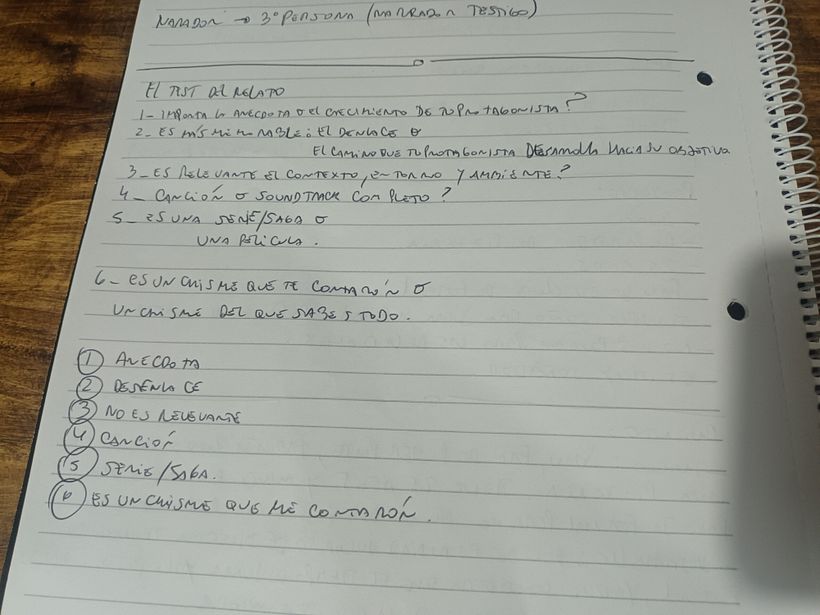 NARRADOR → 3° PERSONA (NARRADOR TESTIGO)
El TEST DEL RELATO
1- IMPORTA LA ANECDOTA O EL CRECIMIENTO DE TU PROTAGONISTA?
2- ES MÁS MEMORABLE: EL DENLACE O
EL CAMINO QUE TU PROTAGONISTA DESARROLLA HACIA SU OBJETIVO
3- ES RELEVANTE EL CONTEXTO, ENTORNO Y AMBIENTE?
4- CANCIÓN O SOUNDTRACK COMPLETO?
5- ES UNA SERIE/SAGA O
UNA PELICULA.
6- ES UN CHISME QUE TE CONTARÓN O
UN CHISME DEL QUE SABES TODO.
1 ANECDOTA
2 DESENLACE
3 NO ES RELEVANTE
4 CANCIÓN
5 SERIE/SAGA.
6 ES UN CHISME QUE ME CONTARÓN.